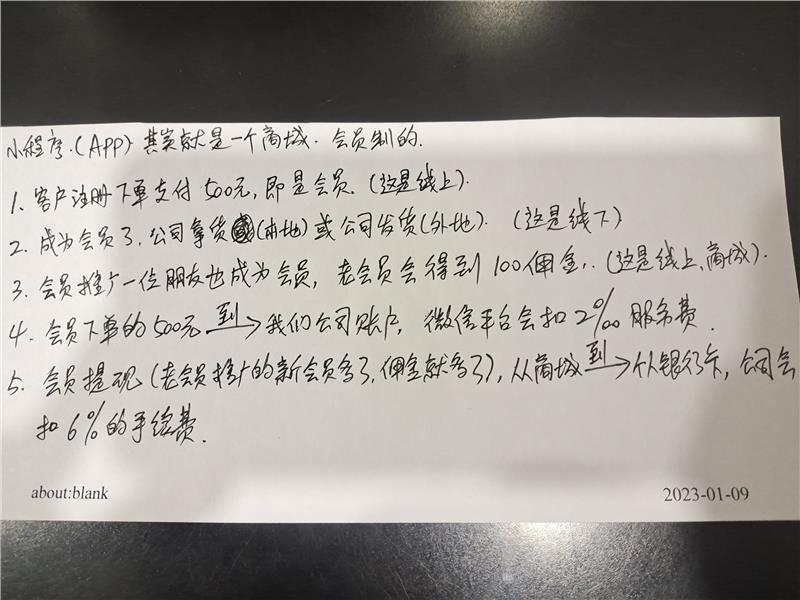 小程序.(App) 其实就是一个商城. 会员制的.
1. 客户注册下单支付500元, 即是会员. (这是线上).
2. 成为会员了, 公司拿货(本地)或公司发货(外地). (这是线下)
3. 会员推广一位朋友也成为会员, 老会员会得到100佣金,. (这是线上, 商城).
4. 会员下单的500元 到→ 我们公司账户, 微信平台会扣2‰服务费.
5. 会员提现(老会员推广的新会员多了, 佣金就多了), 从商城 到→ 个人银行卡, 公司会
扣6%的手续费.
about:blank 2023-01-09